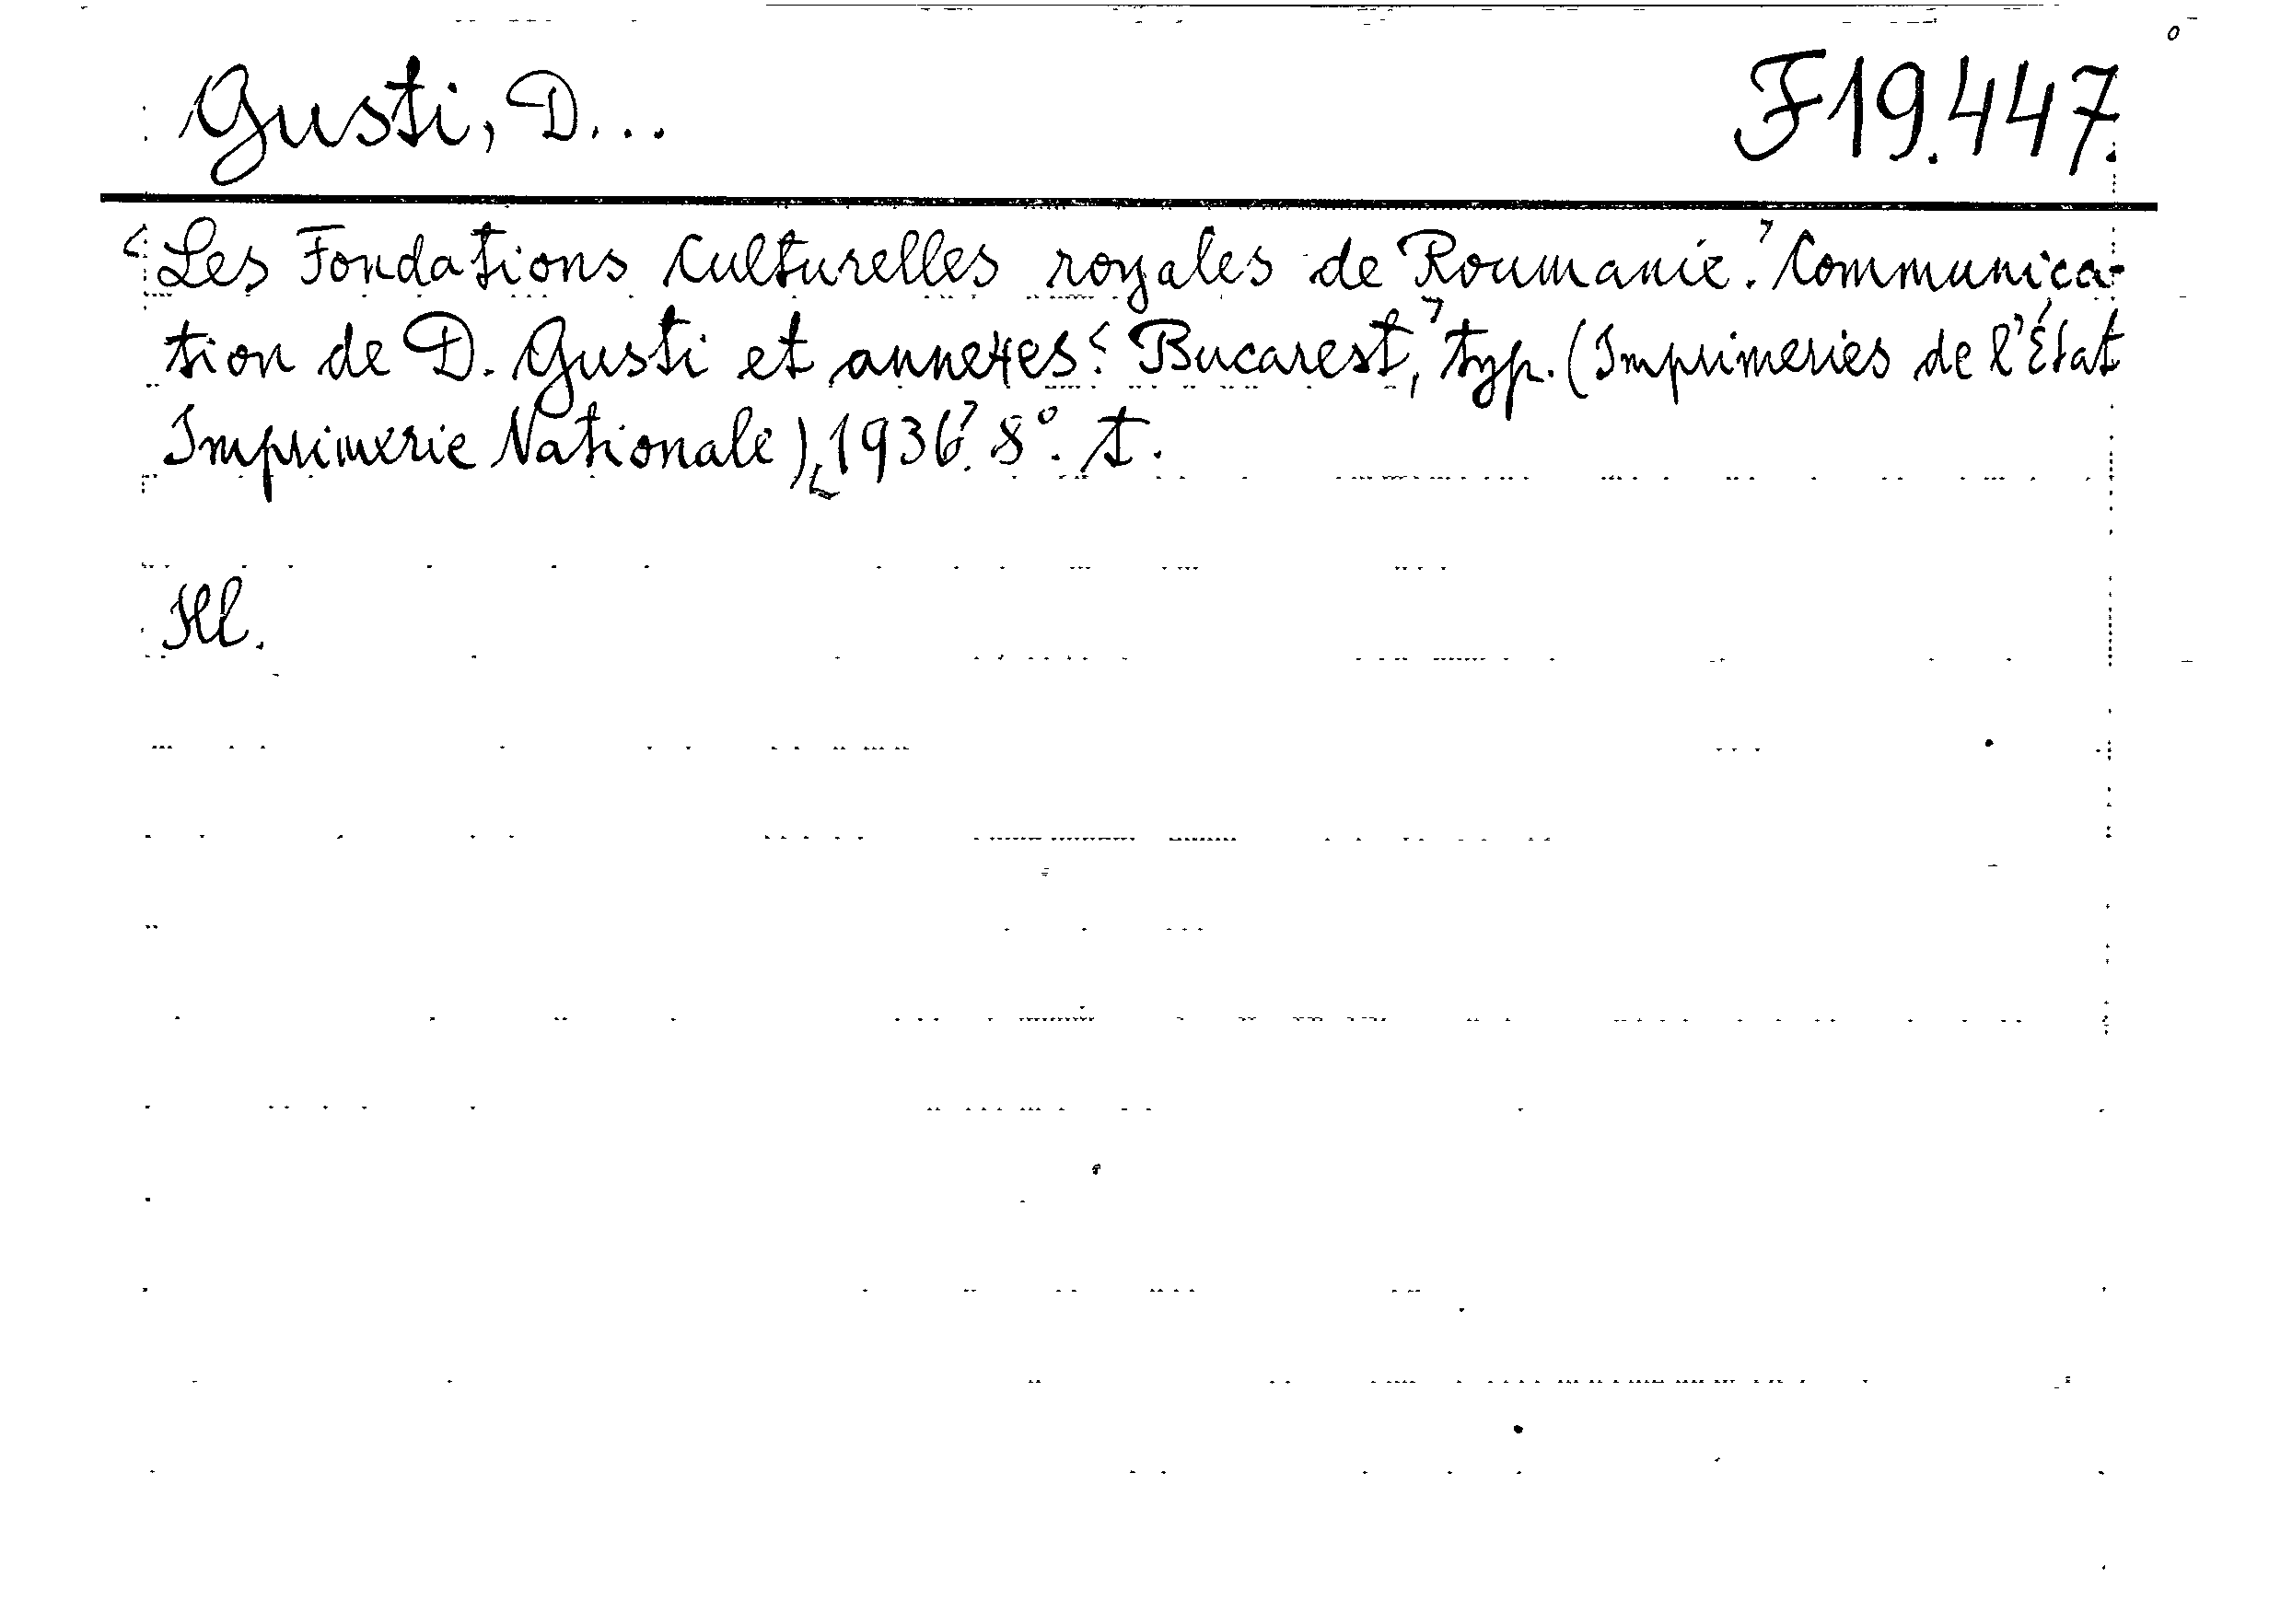 Gusti, D...
F19.447.
<Les Fondations Culturelles royales de Roumanie.> Communica-
tion de D. Gusti et annexes. <Bucarest,> typ. (Imprimeries de l'État
Imprimerie Nationale), <1936>. 8°. T.
Hl.